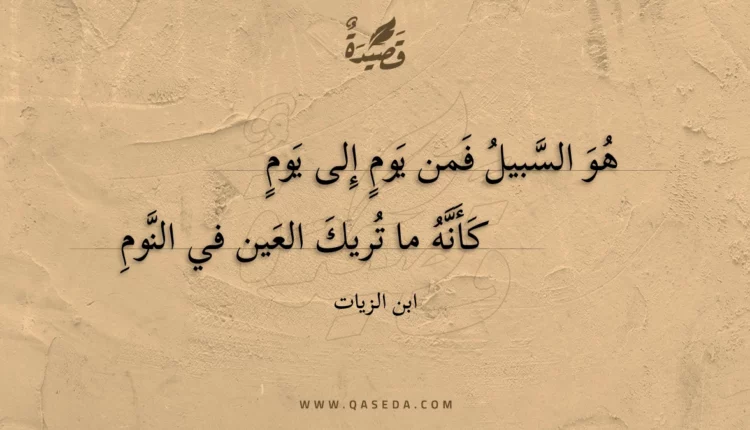 قَصِيدَةٌ
هُوَ السَّبيلُ فَمن يَومٍ إِلى يَومٍ
كَأَنَّهُ ما تُريكَ العَين في النَّومِ
ابن الزيات
WWW.QASEDA.COM